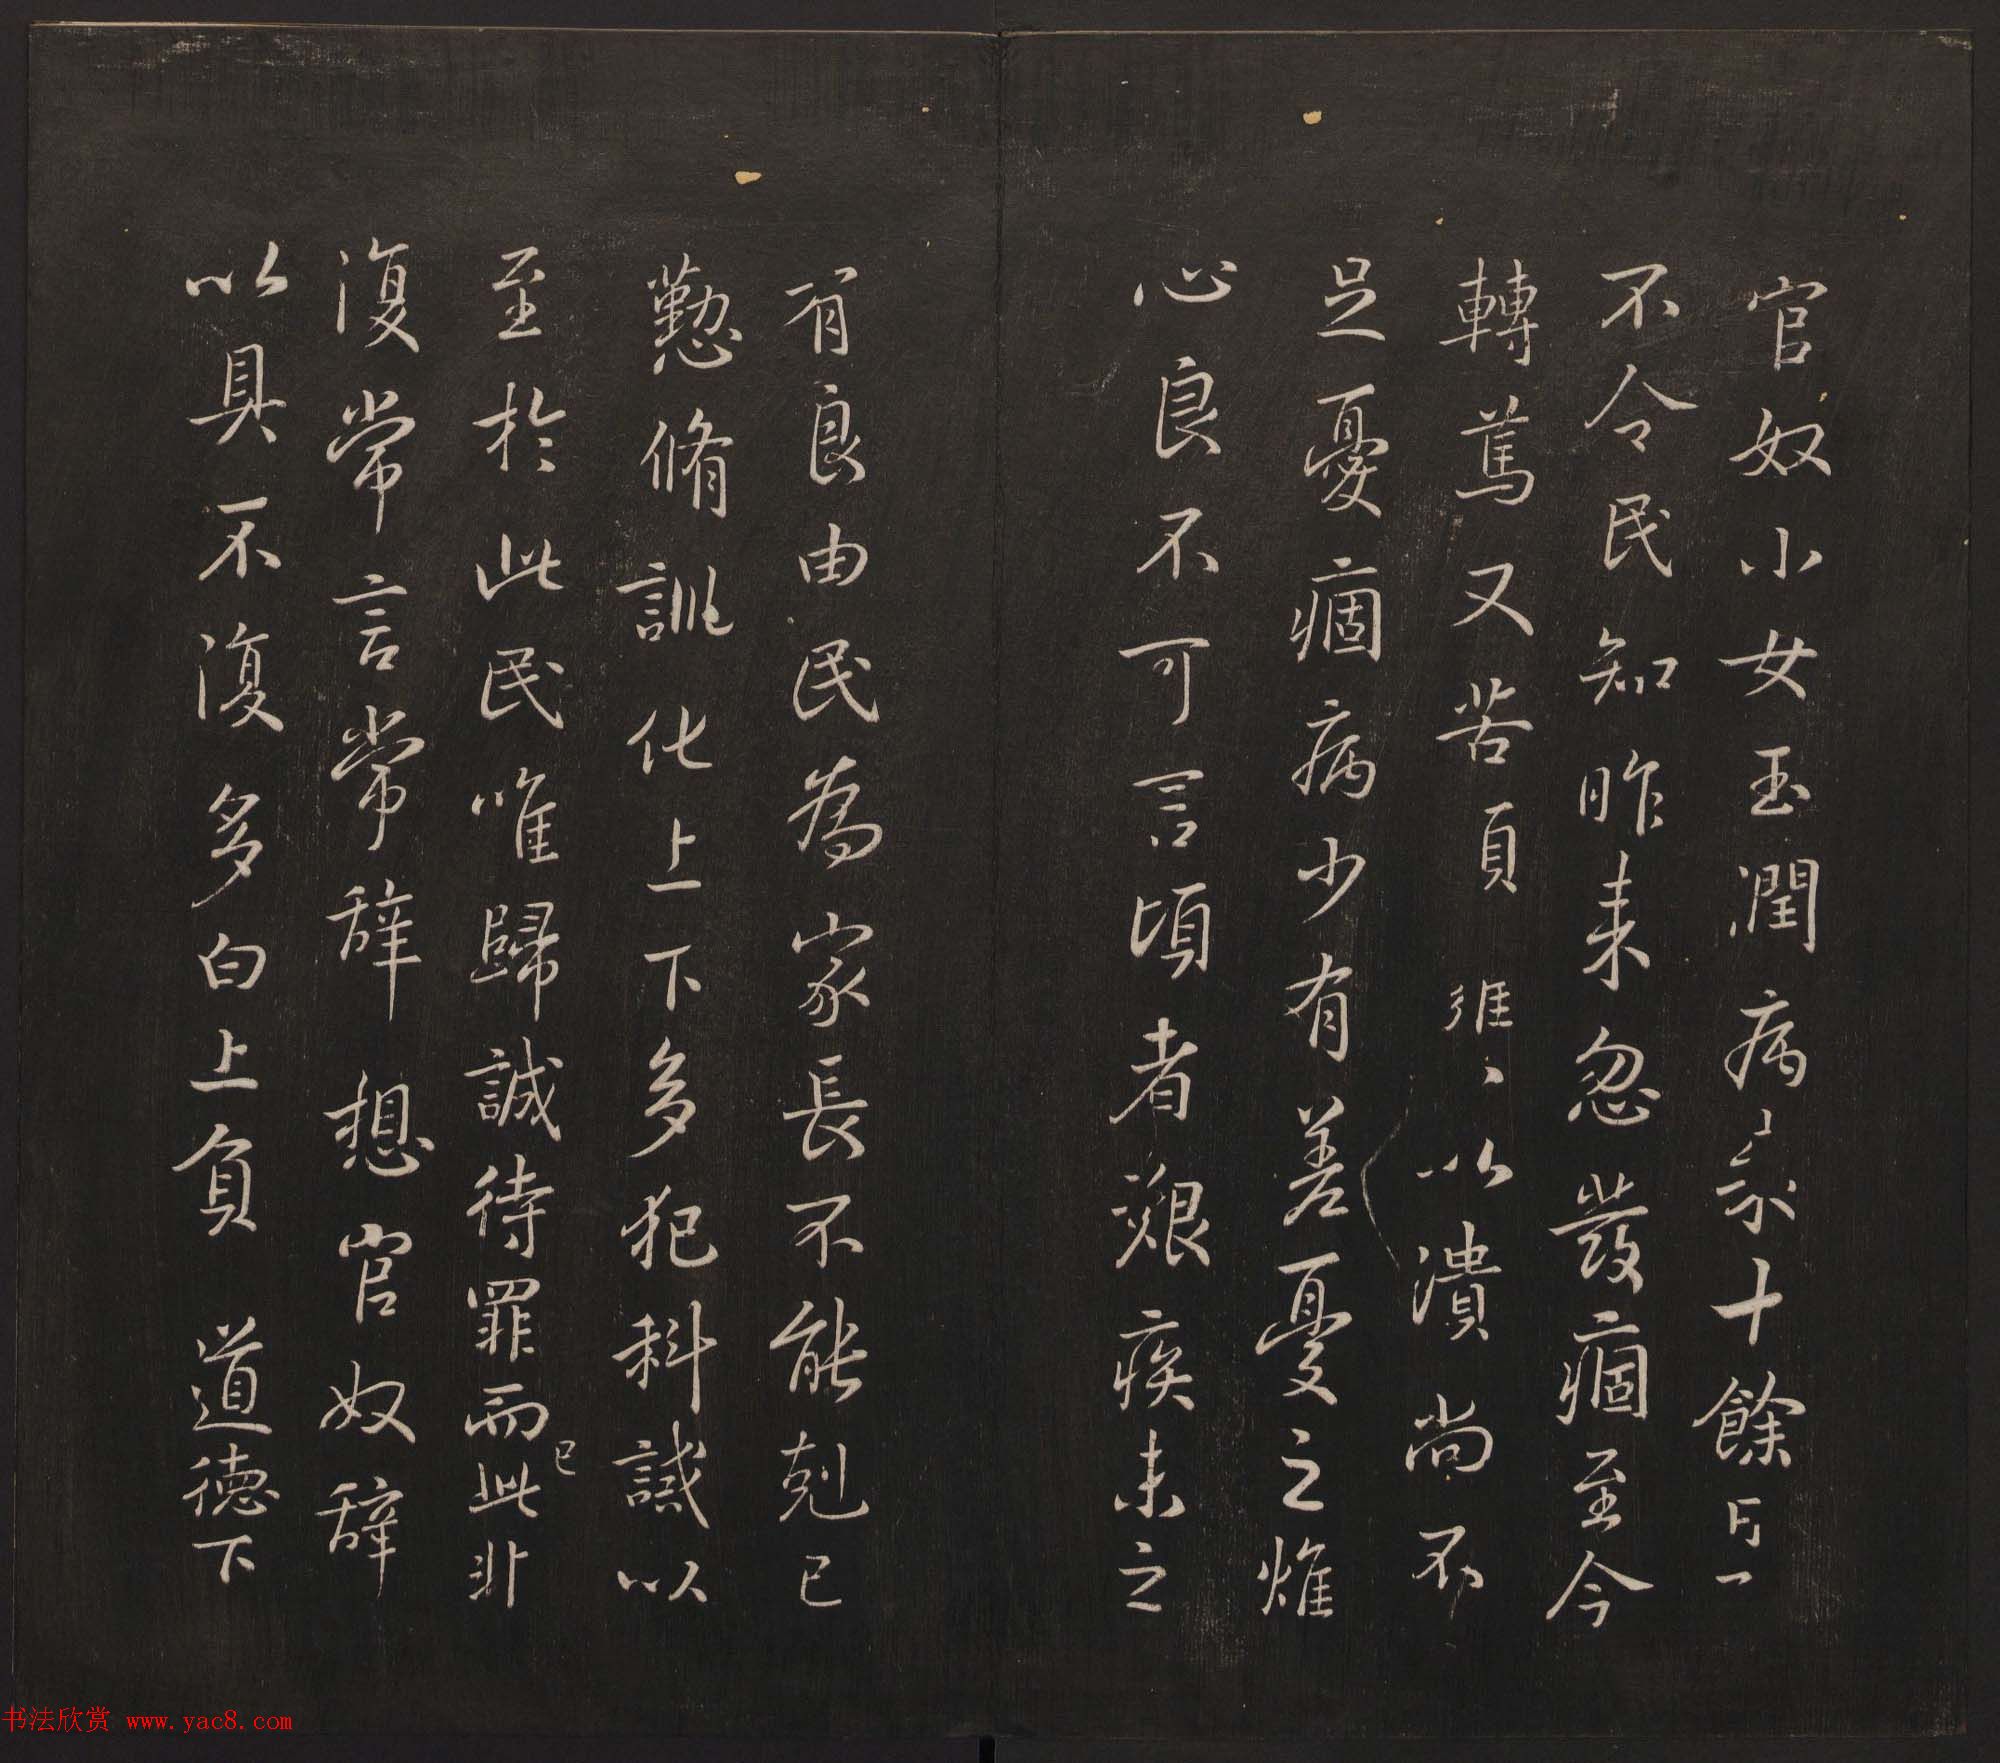 官奴小女玉潤病来十餘日
不令民知昨来忽發痼至今
轉篤又苦頭癰以潰尚不
足憂痼病少有差憂之燋
心良不可言頃者艱疾未之
有良由民為家長不能剋己
懃脩訓化上下多犯科誡以
至於此民唯歸誠待罪而已此非
復常言常辭想官奴辭
以具不復多白上負 道德下
书法欣赏 www.yac8.com